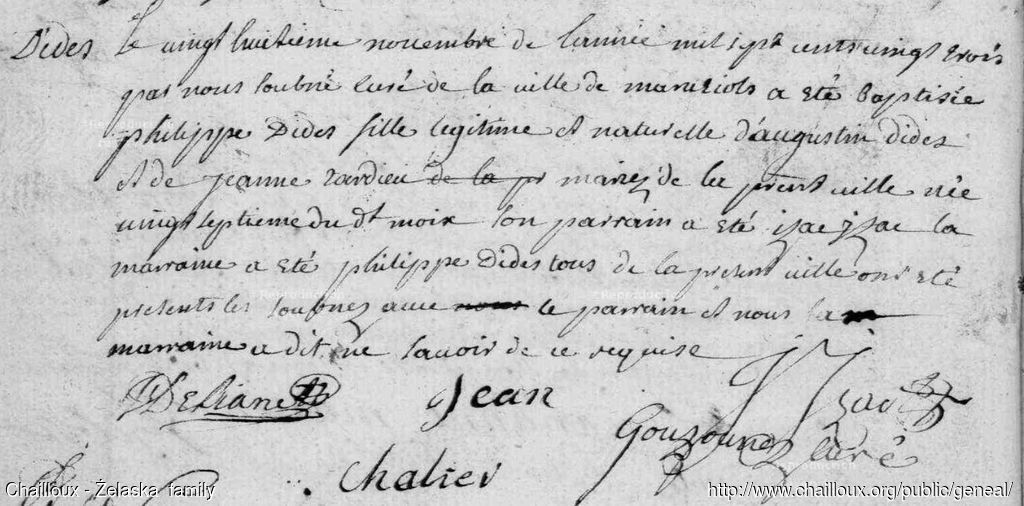 Dides Le vingt huitieme novembre de lannée mil sept cents vingt trois
par nous soubné curé de la ville de maruziols a eté Baptisée
philippe Dides fille legitime et naturelle d'augustin dides
et de jeanne tardieu de la pr mariez de la present ville née
vingt septieme du dt moix son parrain a eté isac ysac la
marraine a eté philippe Dides tous de la present ville ont eté
presents les soubnez avec nous le parrain et nous la
marraine a dit ne savoir de ce requise
Jean
Gouzound curé
Chalier
Chailloux - Żelaska family
http://www.chailloux.org/public/geneal/